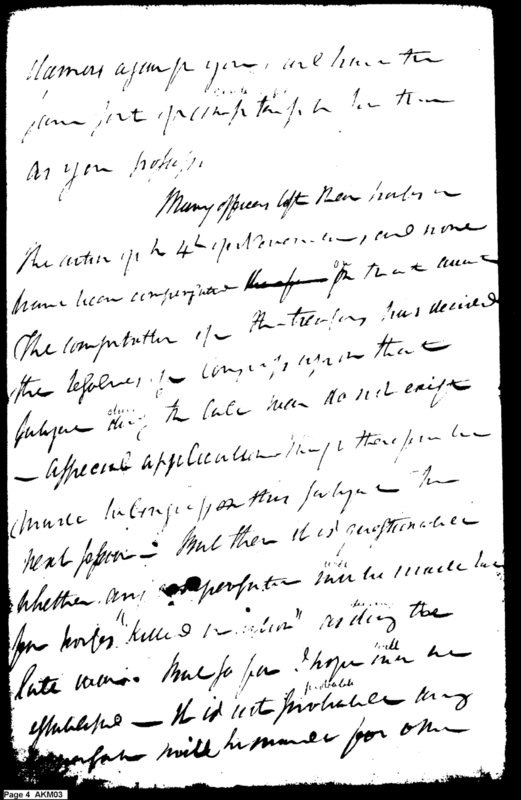 against you, and have the
same sort of
as you possess.
Many officers lost their horses in
the action of the 4th of November, and none
have been compensated on that account
The comptroller of the treasury has decided
the resolves of Congress upon that
subject during the late war do not exist
— A special application must therefore be
made to Congress on this subject the
next session — But then it is questionable
whether any will be made but
for horses "killed in action" as during the
late war. But so far I hope will be
— It is not probable any
will be made for other
Page 4 AKM03